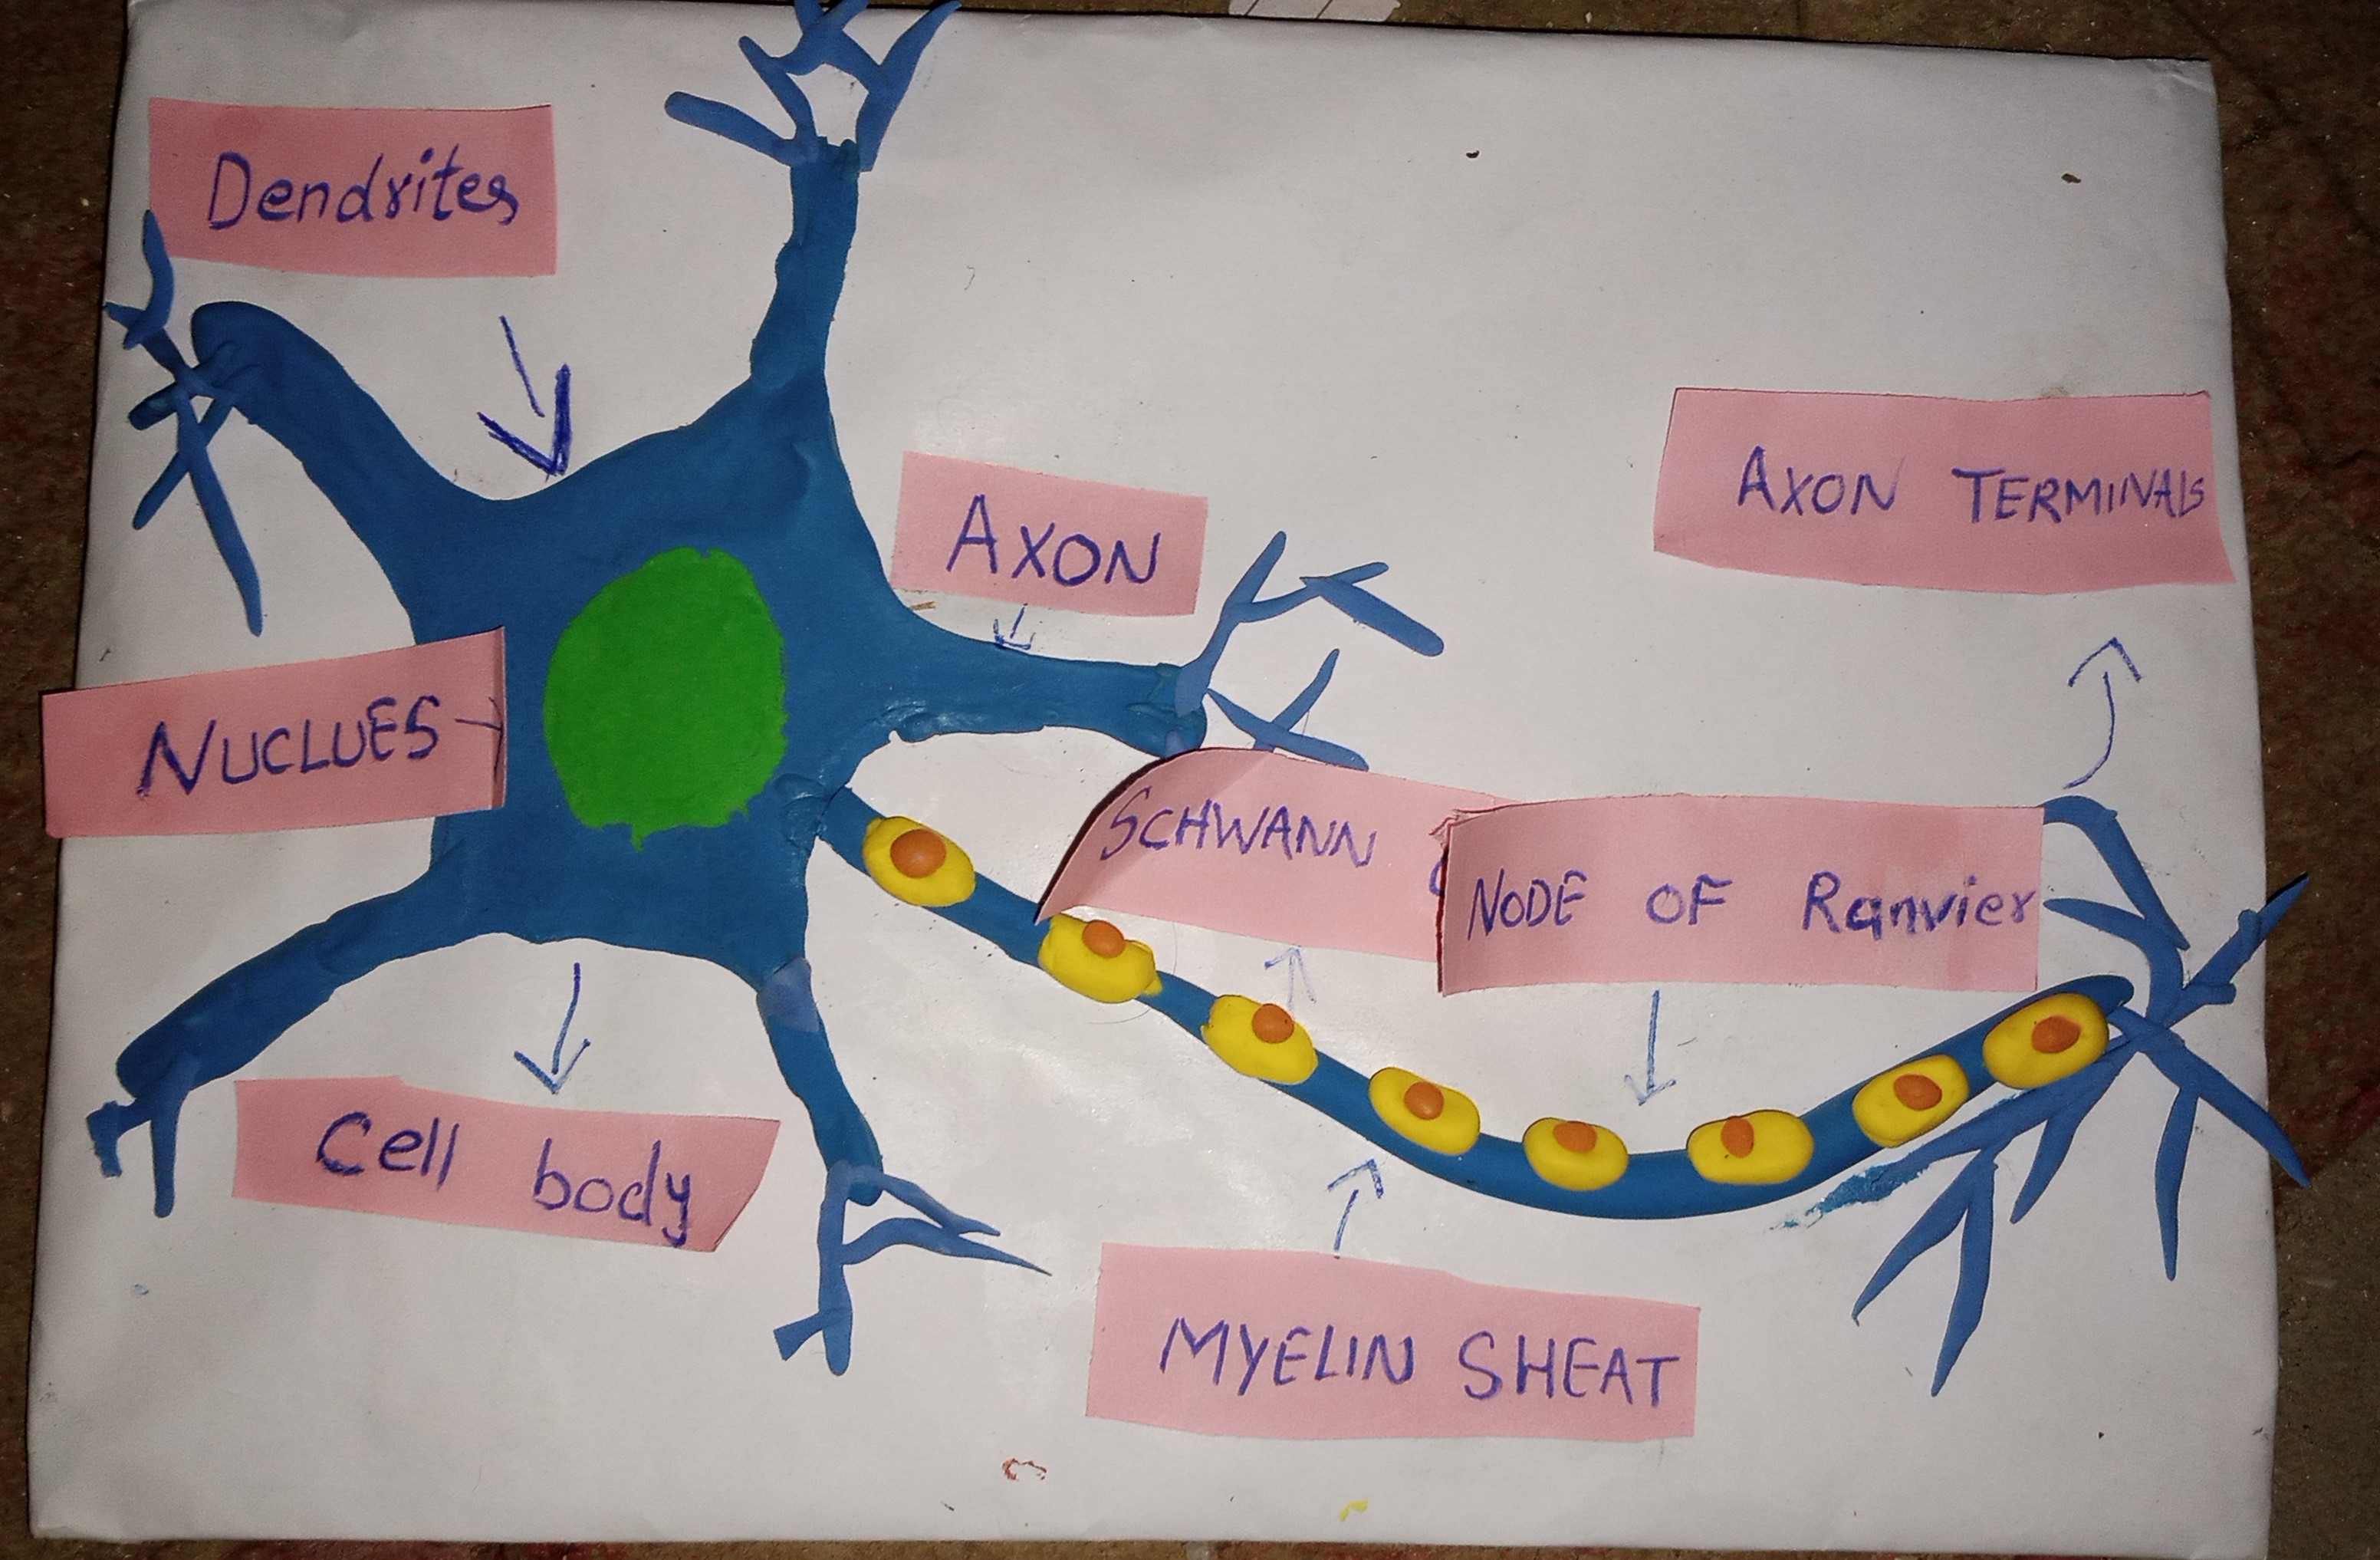 Dendrites
AXON
AXON TERMINALS
NUCLUES
SCHWANN
NODE OF Ranvier
Cell body
MYELIN SHEAT